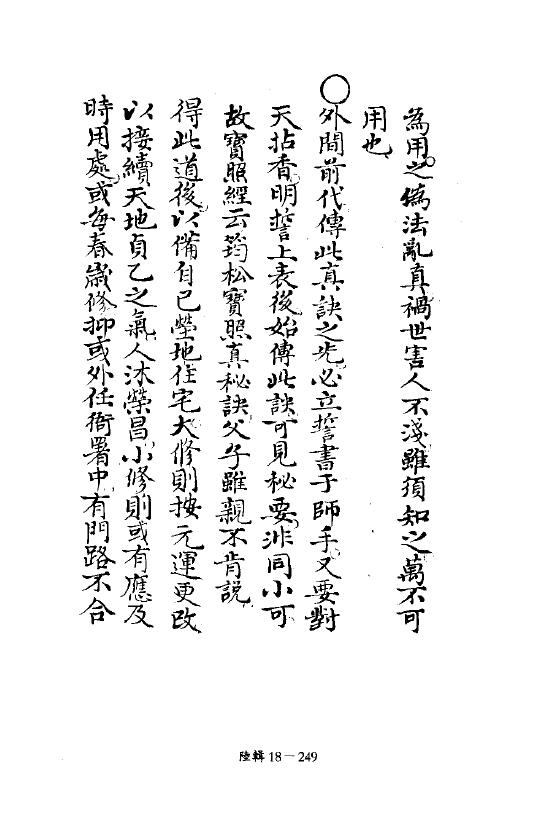 為用之偽法亂真禍世害人不淺雖須知之萬不可
用也
○外間前代傳此真訣之先必立誓書于師手又要對
天拈香明誓上表後始傳此訣可見秘要非同小可
故寶照經云筠松寶照真秘訣父子雖親不肯說
得此道後以備自己塋地住宅大修則按元運更改
以接續天地貞乙之氣人沐榮昌小修則或有應及
時用處或每春歲修抑或外任衙署中有門路不合
陸輯18－249